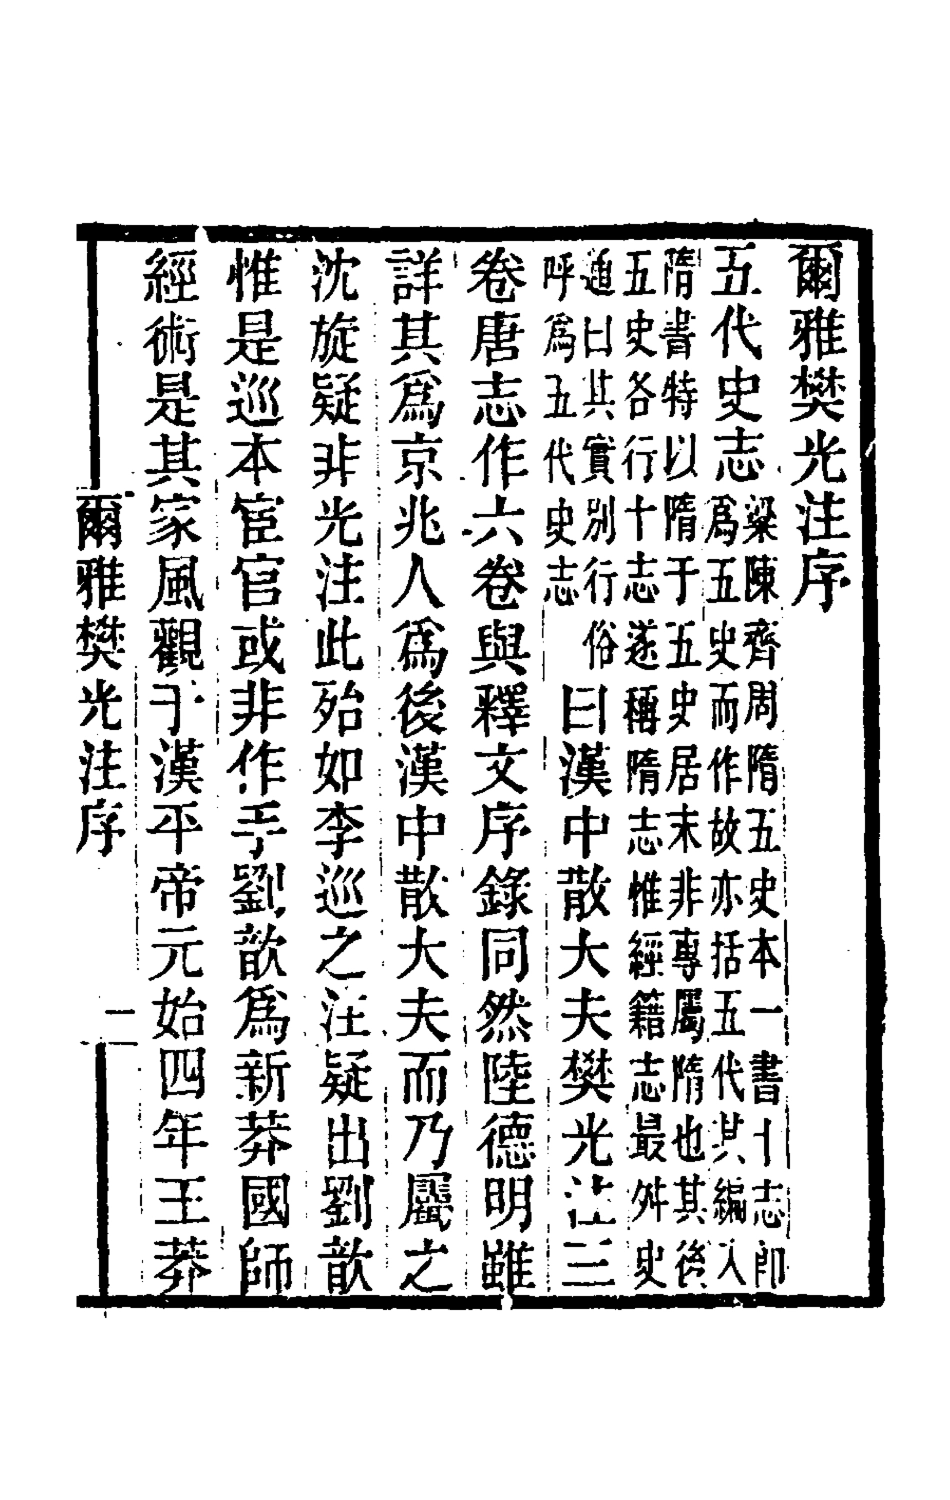 爾雅樊光注序
五代史志
梁陳齊周隋五史本一書十志即
爲五史而作故亦括五代其編入
隋書特以隋于五史居末非專屬隋也其後
五史各行十志遂稱隋志惟經籍志最舛史
通曰其實別行俗
呼爲五代史志
曰漢中散大夫樊光注三
卷唐志作六卷與釋文序錄同然陸德明雖
詳其爲京兆人爲後漢中散大夫而乃屬之
沈旋疑非光注此殆如李巡之注疑出劉歆
惟是巡本宦官或非作手劉歆爲新莽國師
經術是其家風觀于漢平帝元始四年王莽
爾雅樊光注序
一